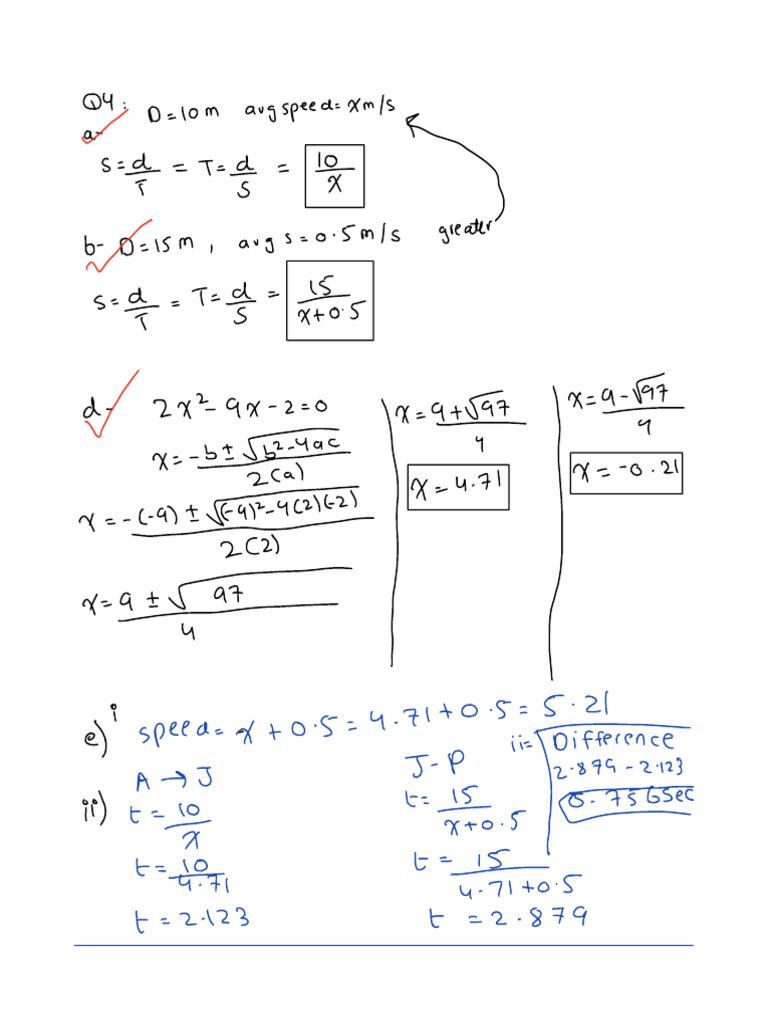 Q4:
a- D=10m avg speed= x m/s
S=d/T = T=d/S = 10/x
b- D=15m, avg s=0.5m/s greater
S=d/T = T=d/S = 15/(x+0.5)
d- 2x²-9x-2=0
x=-b±√(b²-4ac)/2(a)
x=-(-9)±√((-9)²-4(2)(-2))/2(2)
x=9±√97/4
x=9+√97/4
x=4.71
x=9-√97/4
x=-0.21
e) i speed=x+0.5=4.71+0.5=5.21
ii) A→J
t=10/x
t=10/4.71
t=2.123
J-P
t=15/(x+0.5)
t=15/(4.71+0.5)
t=2.879
ii= Difference
2.879-2.123
0.756sec